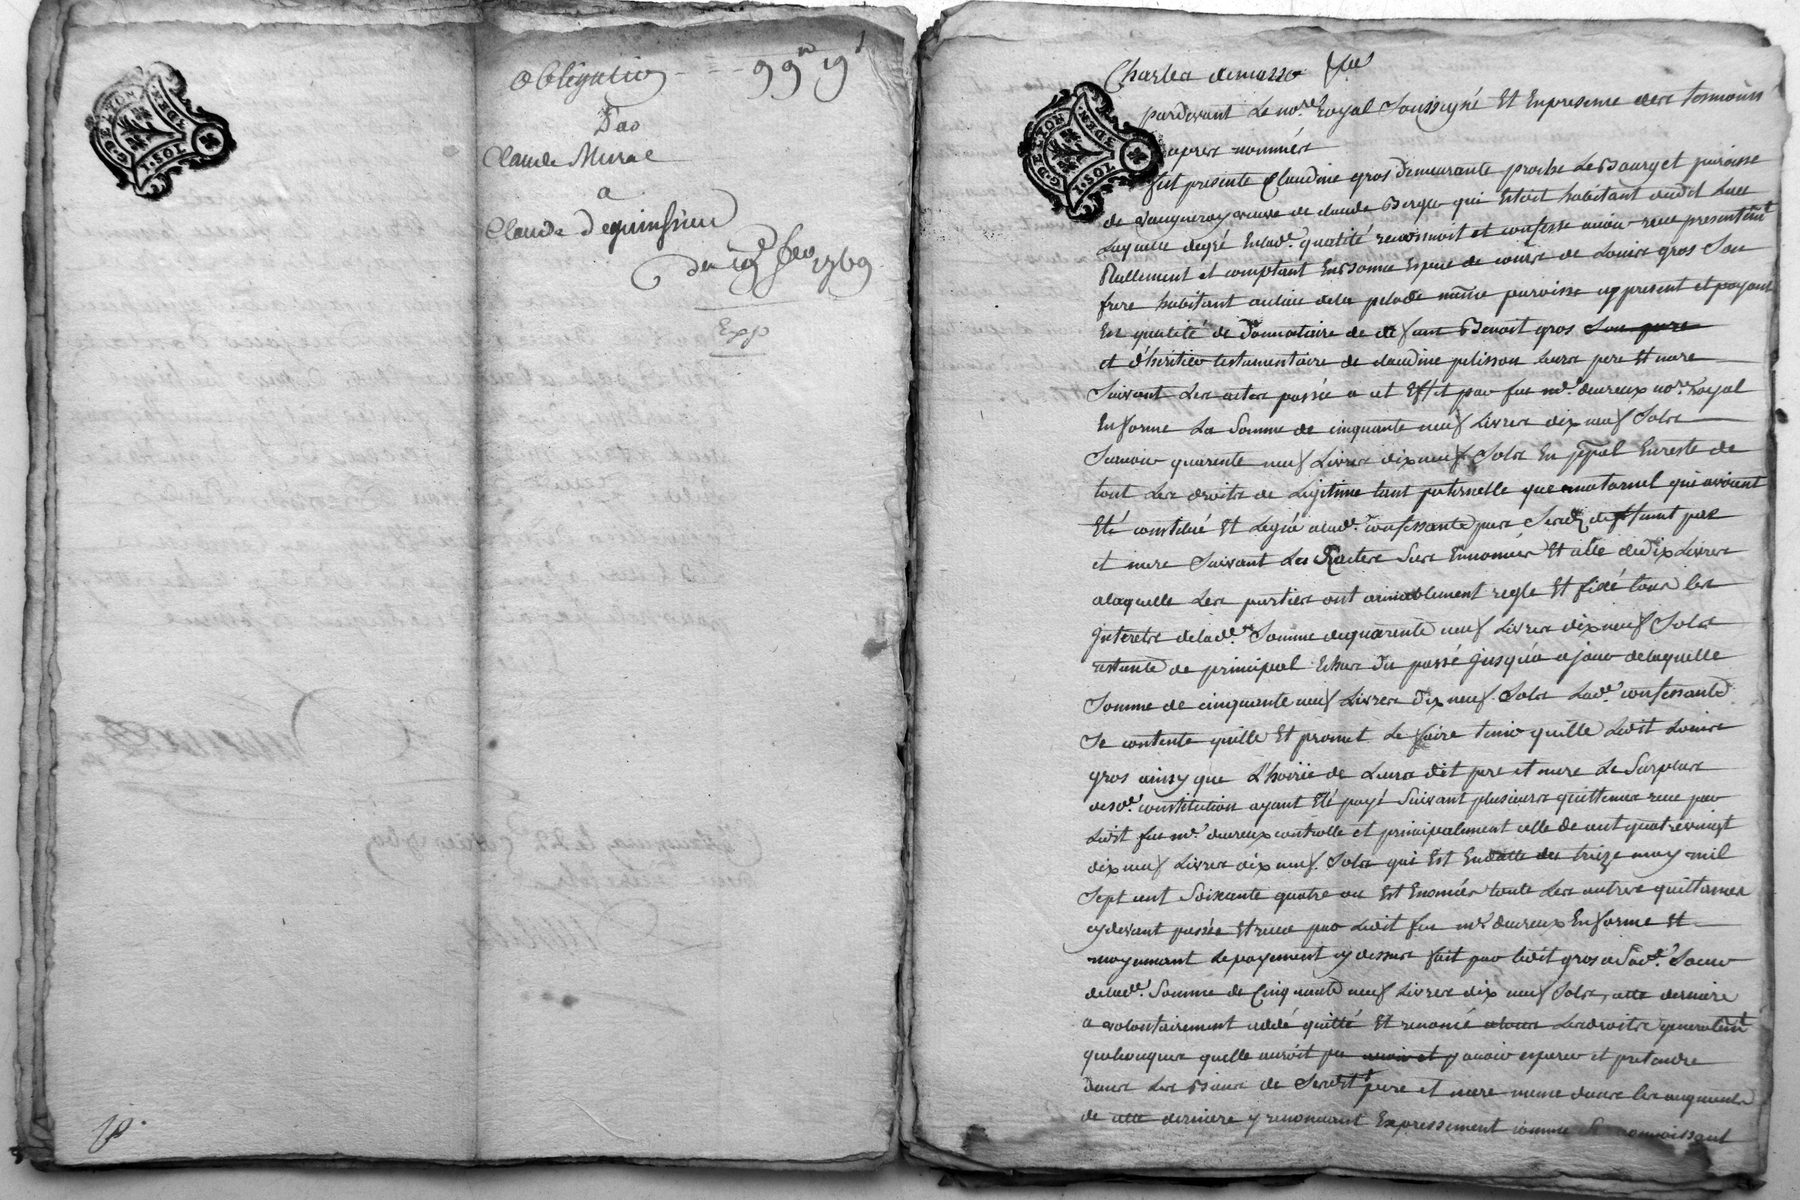 G. DE LYON
1. SOL
DEN
obligation 99ᴸ 19ˢ
Par
Claude Murat
a
Claude Dequinsieu
Du 19ᵉ feo 1769
Exp
Charles demasso
G. DE LYON
1. SOL
DEN
pardevant Le noʳᵉ Royal Soussigné Et En presence des temoins
apres nommés
fut presente Claudine gros demeurante proche Le Bourg et paroisse
de Vaugneray veuve de claude Berger qui Estoit habitant audit Lieu
Laquelle degré En lad.ᵉ qualité reconnoit et confesse avoir receu presentemᵗ
Rellement et comptant En bonne Espece de cours de Louis gros Son
frere habitant au lieu de la pelode même paroisse cy present et payant
En qualité de donnataire de deffunt Benoit gros Son pere
et d'heritier testamentaire de claudine pelisson Leurs pere Et mere
Suivant Les actes passés a cet Effet par feu mᵉ. devreux noʳᵉ Royal
En forme La Somme de cinquante neuf Livres dix neuf Sols
Scavoir quarente neuf Livres dix neuf Sols En ppal En reste de
tout Les droits de Legitime tant paternelle que maternel qui avoient
Eté constitué Et Legué a lad.ᵉ confessante par Sesd. deffunt pere
et mere Suivant Les actes Sus Ennomés Et celle de dix Livres
a laquelle Les parties ont amiablement reglé Et fixé tous les
Interets de lad.ᵉ Somme de quarente neuf Livres dix neuf Sols
restante de principal Echus du passé Jusqu'a ajour de laquelle
Somme de cinquante neuf Livres dix neuf Sols Lad.ᵉ confessante
Se contente quitte Et promet Le faire tenir quitte Ledit Louis
gros ainsy que L'hoirie de Leurs dit pere et mere Le Surplus
desd.ᵉ constitution ayant Eté payé Suivant plusieurs quittances receu par
Ledit feu mᵉ. devreux controllé et principalement celle de cent quatre vingt
dix neuf Livres dix neuf Sols qui Est En datte du treize may mil
Sept cent Soixante quatre ou Est Enoncées toute Les autres quittances
cy devant passées Et receu par Ledit feu mᵉ devreux En forme Et
moyennant Le payement cy dessus fait par ledit gros a Sad.ᵉ Soeur
de lad.ᵉ Somme de Cinquante neuf Livres dix neuf Sols, cette derniere
a volontairement cedé quitté Et renoncé a tous Les droits generalemᵗ
quelconques quelle auroit pu avoir et y avoir esperer et pretendre
Dans Les Biens de Sesdit pere et mere meme dans les augments
de cette derniere y renoncant Expressement comme Se connoissant